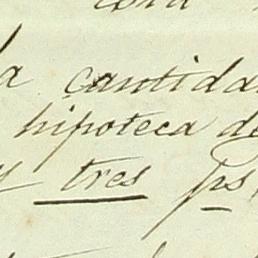 la cantida
hipoteca de
y tres ps